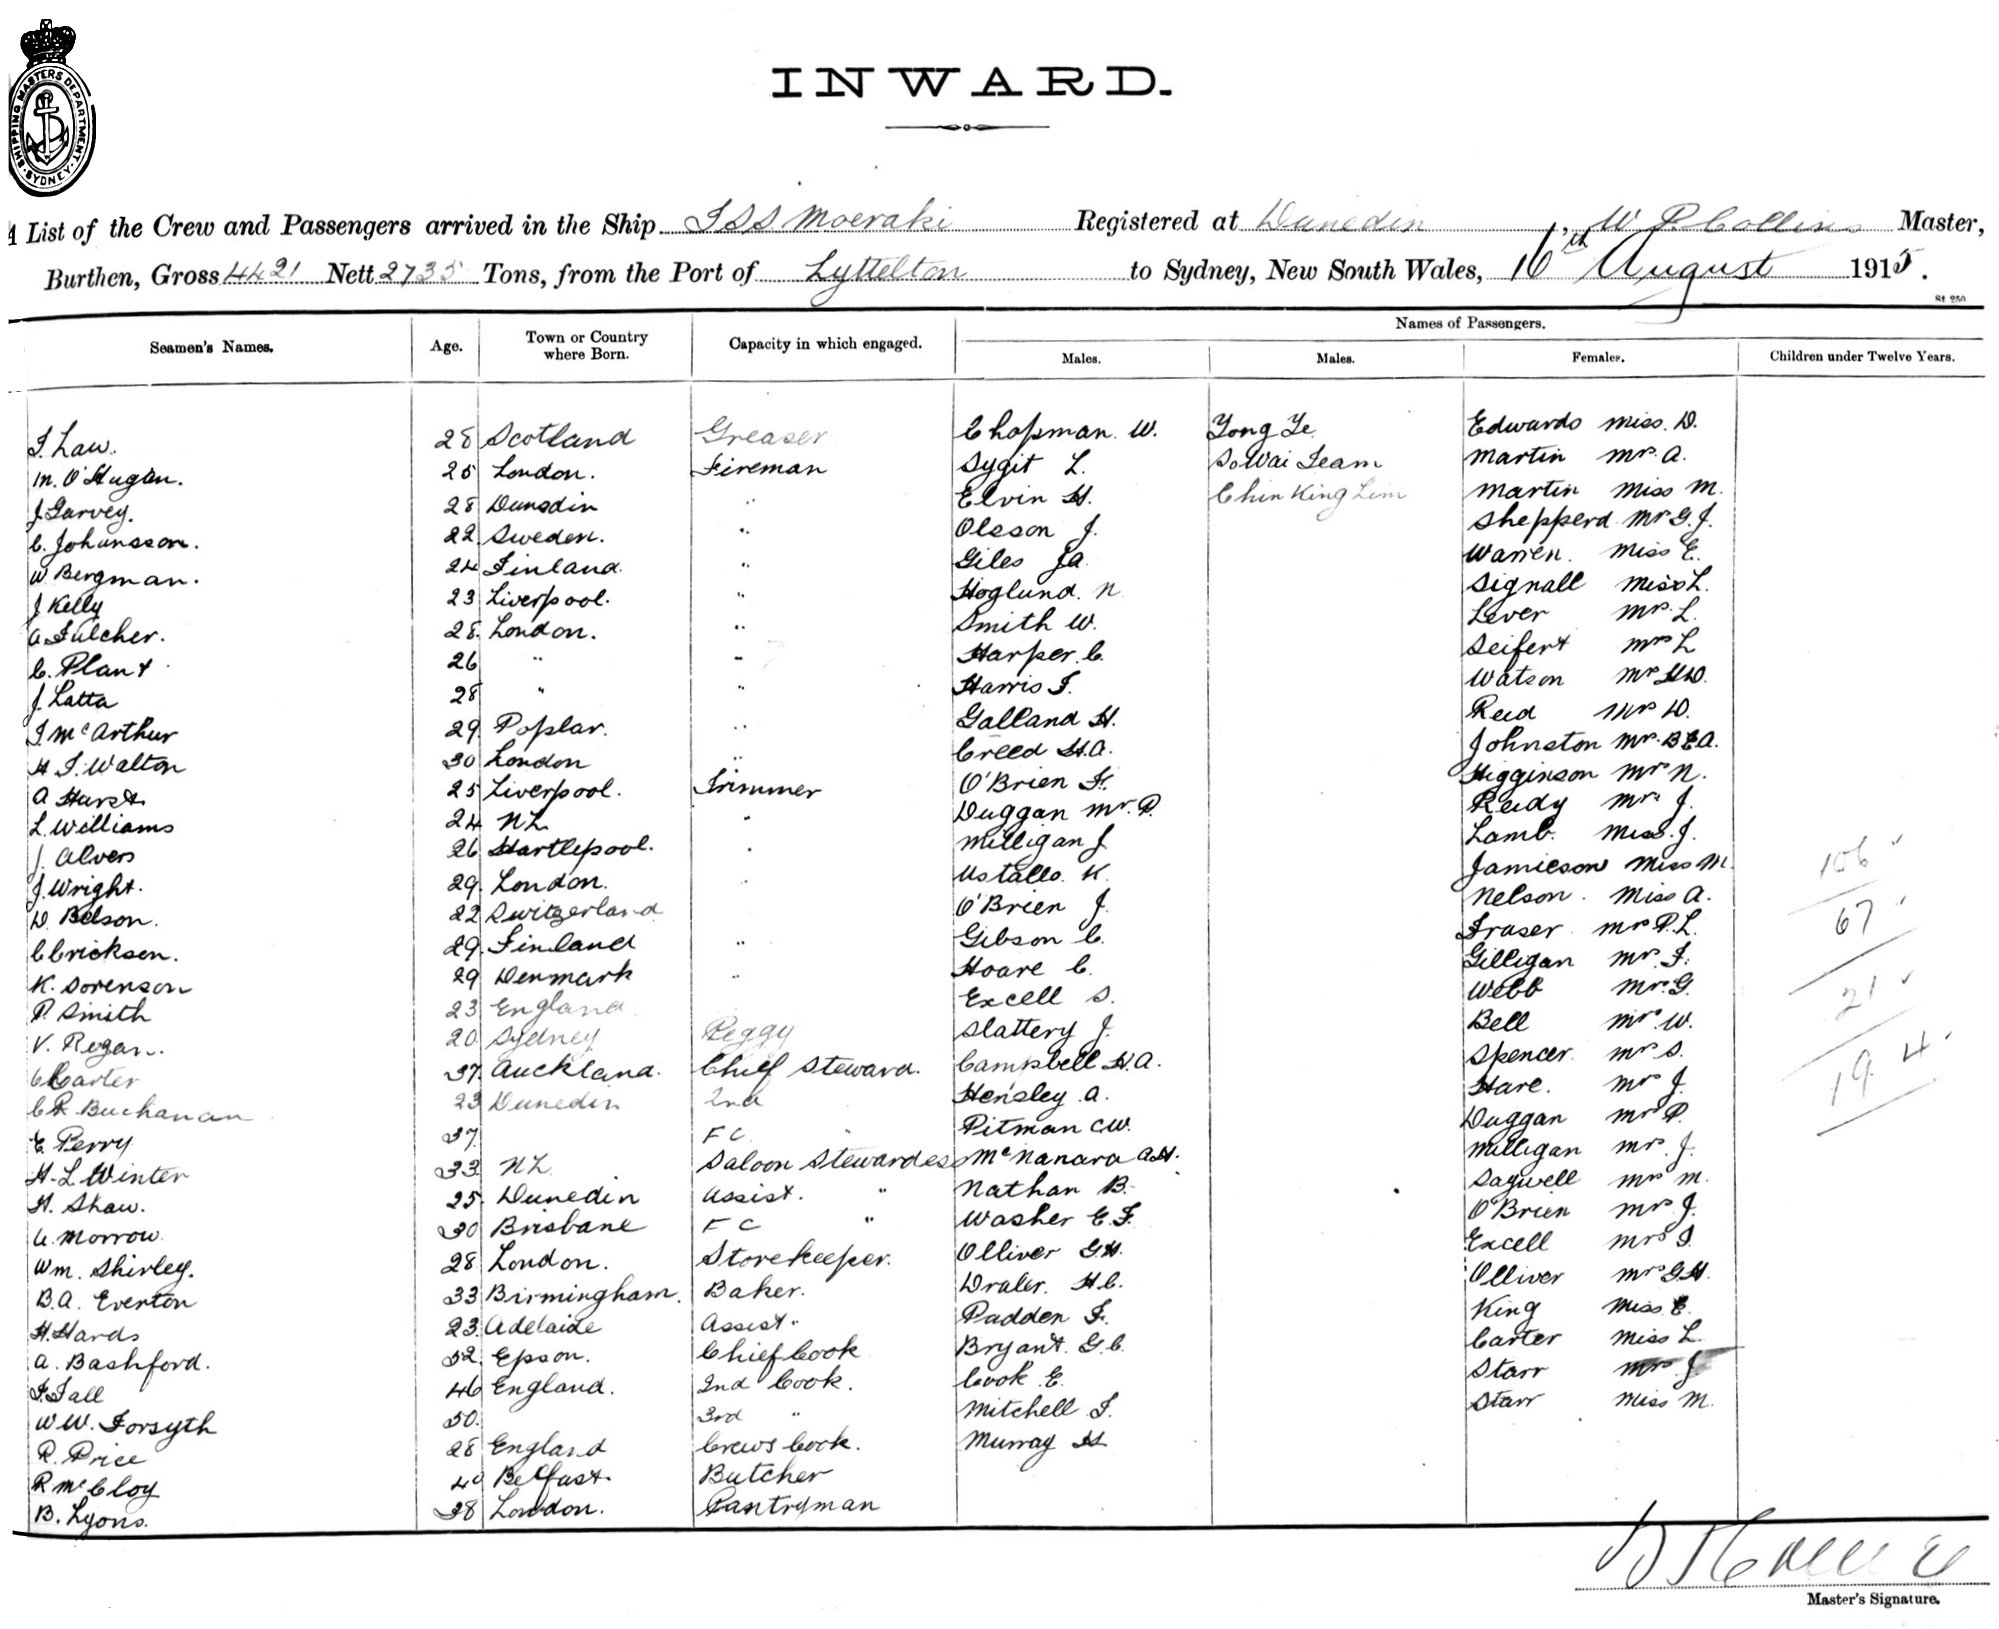 SHIPPING MASTERS DEPARTMENT. SYDNEY.
INWARD.
A List of the Crew and Passengers arrived in the Ship TSS Moeraki Registered at Dunedin, W P Collins Master,
Burthen, Gross 4421 Nett 2735 Tons, from the Port of Lyttelton to Sydney, New South Wales, 16th August 1915.
St 250
Names of Passengers.
Seamen's Names. Age. Town or Country where Born. Capacity in which engaged. Males. Males. Females. Children under Twelve Years.
T. Law. 28 Scotland Greaser Chapman. W. Yong Ye Edwards Miss. D.
M. O'Hugan. 25 London. Fireman Sygit L. So Wai Team Martin Mrs. A.
J Garvey. 28 Dunedin " Elvin H. Chin King Lim Martin Miss M.
C. Johansson. 22 Sweden. " Olsson J. Shepperd Mrs G. J.
W Bergman. 24 Finland. " Giles Ja Warren. Miss E.
J Kelly 23 Liverpool. " Hoglund. N Signall Miss L.
A Fulcher. 28. London. " Smith W. Lever Mrs. L.
C. Plant 26 " " Harper. C. Seifert Mrs L
J. Latta 28 " " Harris F. Watson Mrs H.D.
J. McArthur 29. Poplar. " Galland H. Reid Mrs D.
H J. Walton 30 London " Creed H.A. Johnston Mrs. B E A.
A Hurst. 25 Liverpool. Trimmer O'Brien F. Higginson Mrs N.
L. Williams 24 NZ " Duggan Mr. P. Reidy Mrs J.
J. Alvers 26 Hartlepool. " Milligan J Lamb. Miss. J.
J. Wright. 29. London. " Ustallo. K. Jamieson Miss M.
D. Belson. 22 Switzerland O'Brien J. Nelson. Miss A.
C Ericksen. 29. Finland " Gibson C. Fraser Mrs P. L.
K. Sorenson 29 Denmark " Hoare C. Gilligan Mrs. F.
P. Smith 23 England Excell S. Webb Mrs. G.
V. Regan. 20 Sydney Peggy Slattery J. Bell Mrs. W.
C Carter 37. Auckland. Chief Steward. Campbell H.A. Spencer Mrs S.
C R. Buchanan 23 Dunedin 2nd Hensley. A. Hare. Mrs J.
E Perry 37. F C " Pitman C W. Duggan Mrs P.
H. L Winter 33 NZ Saloon Stewardess McNanara A H. Milligan Mrs. J.
H. Shaw. 25. Dunedin Assist. " Nathan B. Sagwell Mrs M.
A. Morrow 30 Brisbane F C " Washer E. F. O'Brien Mrs. J.
Wm. Shirley. 28 London. Storekeeper. Olliver G H. Excell Mrs S.
B. A. Everton 33 Birmingham. Baker. H C. Olliver Mrs G H.
H. Hards 23. Adelaide Assist. Padden F. King Miss E.
A. Bashford. 52. Epson. Chief Cook Bryant. G. C. Carter Miss L.
F. Tall 46 England. 2nd Cook. Cook E. Starr Mrs. J
W W. Forsyth 50. 3rd " Mitchell F. Starr Miss M.
R. Price 28 England Crews Cook. Murray H
R McCloy 40 Belfast. Butcher
B. Lyons. 38 London. Pantryman
106
67
21
194
Master's Signature.